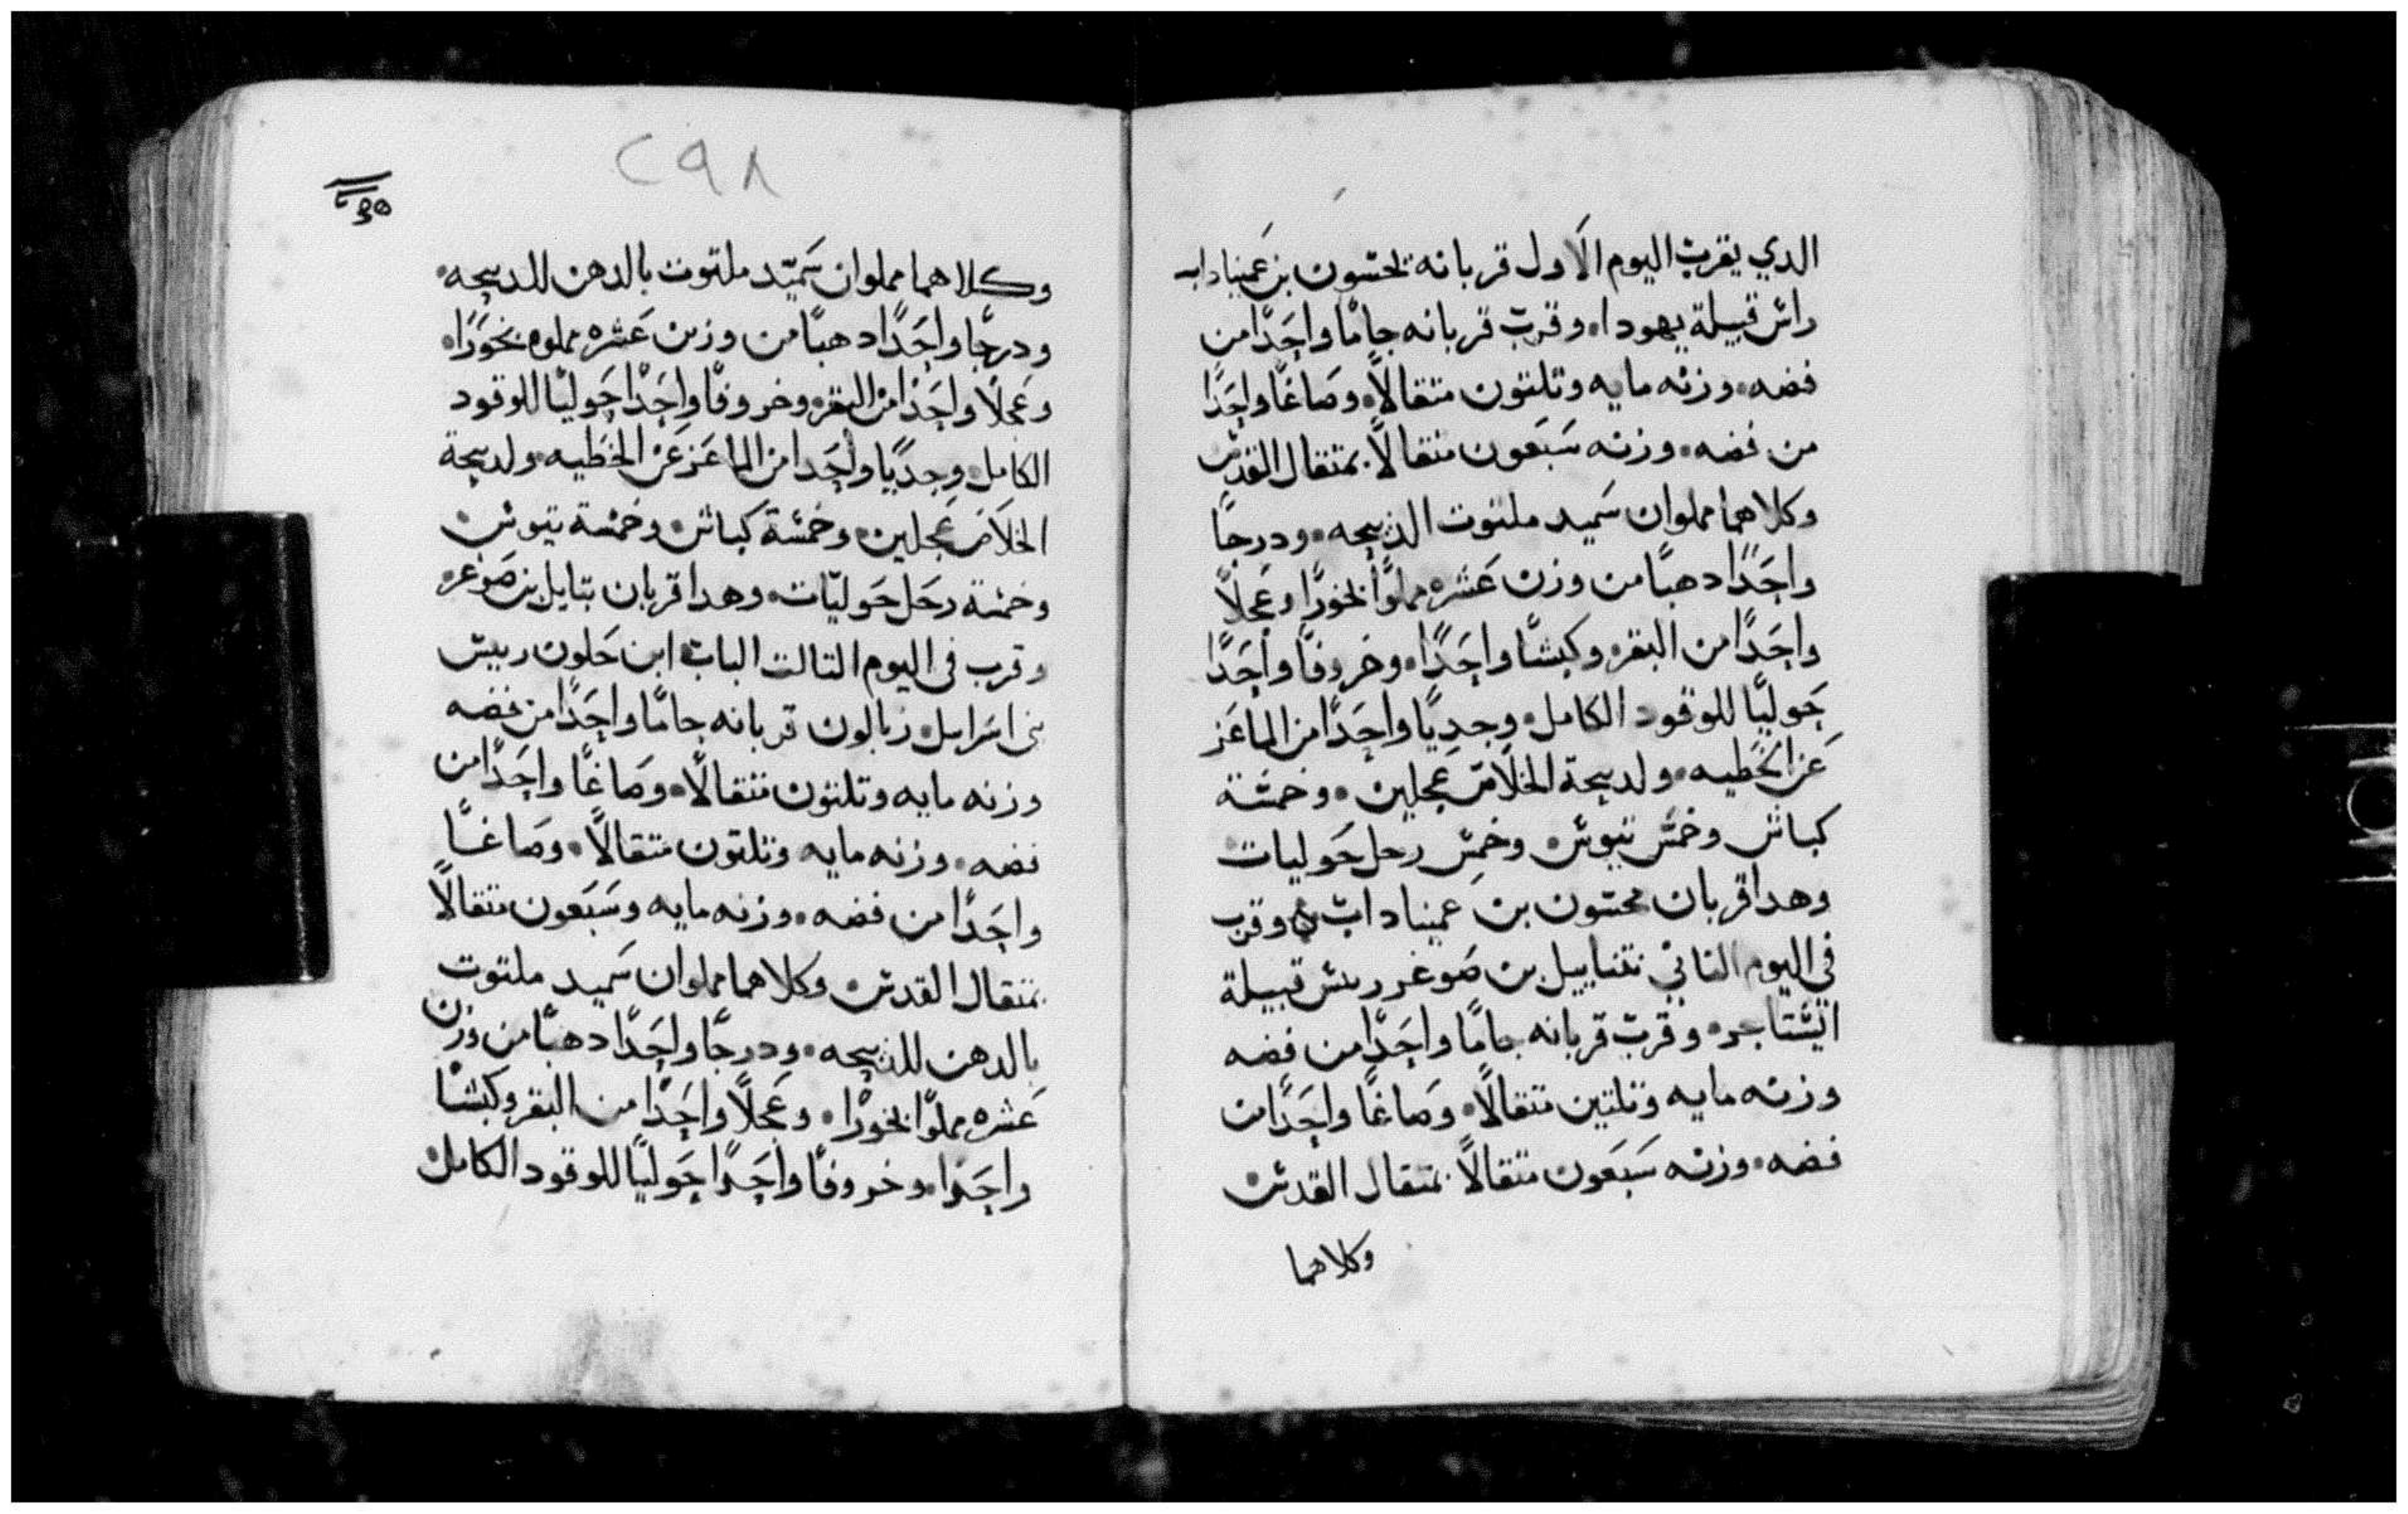 الدي يقرب اليوم الاول قربانه نحشون بن عميناداب
راس قبيلة يهودا. وقرب قربانه جامًا واحدًا من
فضه. وزنه مايه وتلتون متقالًا. وصاغًا واحدًا
من فضه. وزنه سبعون متقالًا بمتقال القدس
وكلاهما مملوان سميد ملتوت الذبيحه. ودرجًا
واحدًا دهبًا من وزن عشره مملوًا بخورًا وعجلًا
واحدًا من البقر. وكبشًا واحدًا. وخروفًا واحدًا
حوليًا للوقود الكامل. وجديًا واحدًا من الماعز
عن الخطيه. ولدبيحة الخلاص عجلين. وخمسة
كباش وخمس تيوس. وخمس رحل حوليات
وهدا قربان نحشون بن عميناداب وقرب
في اليوم التاني نتناييل بن صوغر ريس قبيلة
ايشتاجر. وقرب قربانه جامًا واحدًا من فضه
وزنه مايه وتلتين متقالًا. وصاغًا واحدًا من
فضه. وزنه سبعون متقالًا بمتقال القدس
وكلاهما
٢٩٨
وكلاهما مملوان سميد ملتوت بالدهن للدبيحه.
ودرجًا واحدًا دهبًا من وزن عشره مملوه بخورًا.
وعجلًا واحدًا من البقر. وخروفًا واحدًا حوليًا للوقود
الكامل. وجديًا واحدا من الماعز عن الخطيه. ولدبيحة
الخلاص عجلين. وخمسة كباش. وخمسة تيوس
وخمسة رحل حوليات. وهدا قربان بتايل بن صوغر.
وقرب في اليوم التالت الياب ابن حلون ريس
بني اسراييل. زبالون قربانه جامًا واحدًا من فضه
وزنه مايه وتلتون متقالًا. وصاغًا واحدًا من
فضه. وزنه مايه وتلتون متقالًا. وصاغًا
واحدًا من فضه. وزنه مايه وسبعون متقالًا
بمتقال القدس وكلاهما مملوان سميد ملتوت
بالدهن للذبيحه. ودرجًا واحدًا دهبًا من وزن
عشره مملوًا بخورًا. وعجلًا واحدًا من البقر وكبشًا
واحدًا. وخروفًا واحدًا حوليًا للوقود الكامل